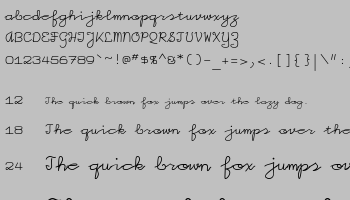 abcdefghijklmnopqrstuvwxyz
ABCDEFGHIJKLMNOPQRSTUVWXYZ
0123456789`~!@#$%^&*()-_+=>,<.[]{}|\":
12 The quick brown fox jumps over the lazy dog.
18 The quick brown fox jumps over the
24 The quick brown fox jumps ov